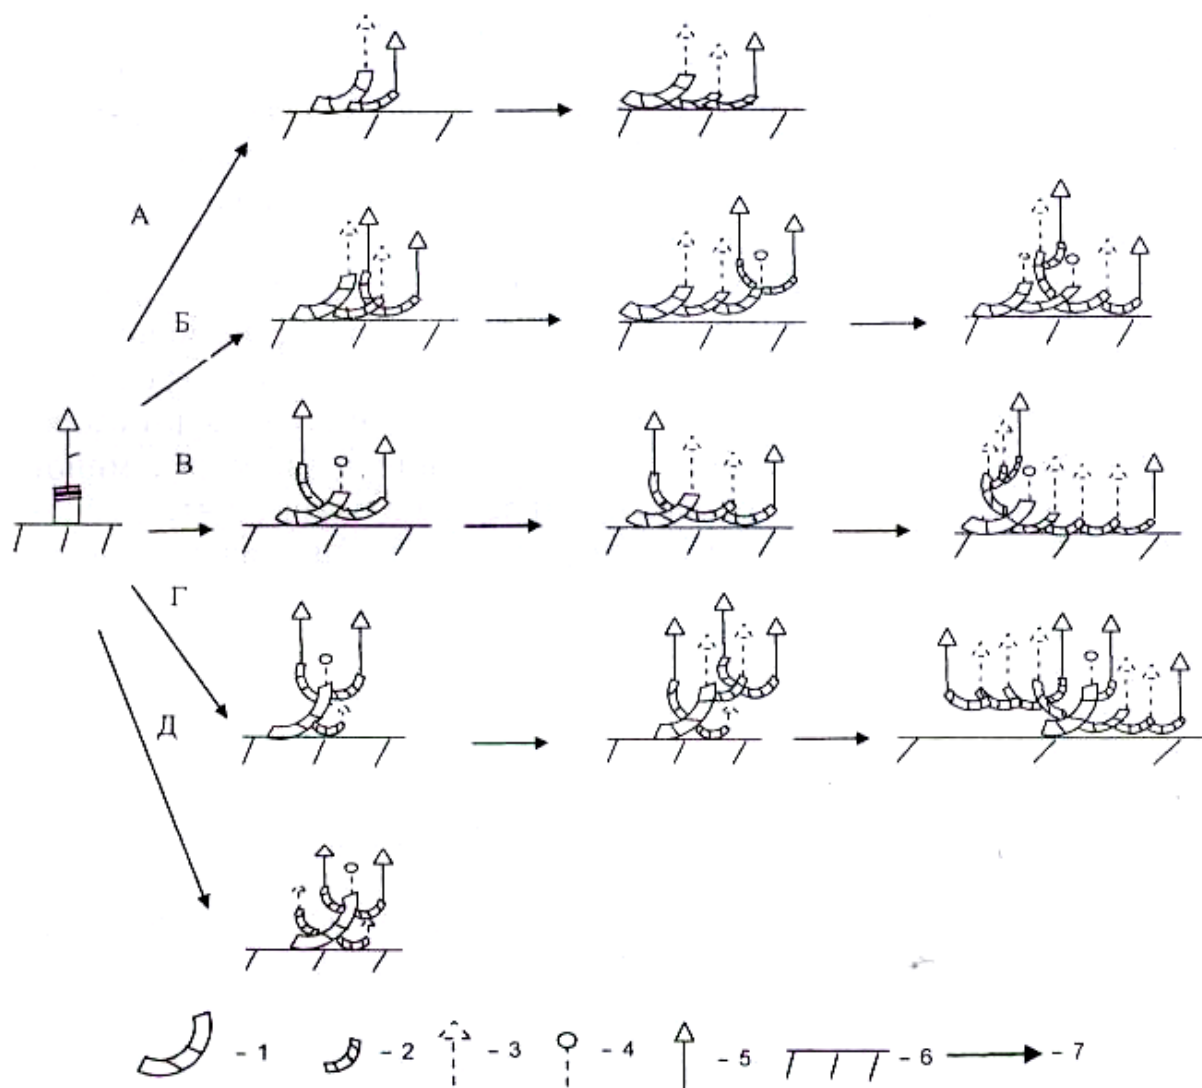 А
Б
В
Г
Д
- 1
- 2
- 3
- 4
- 5
- 6
- 7